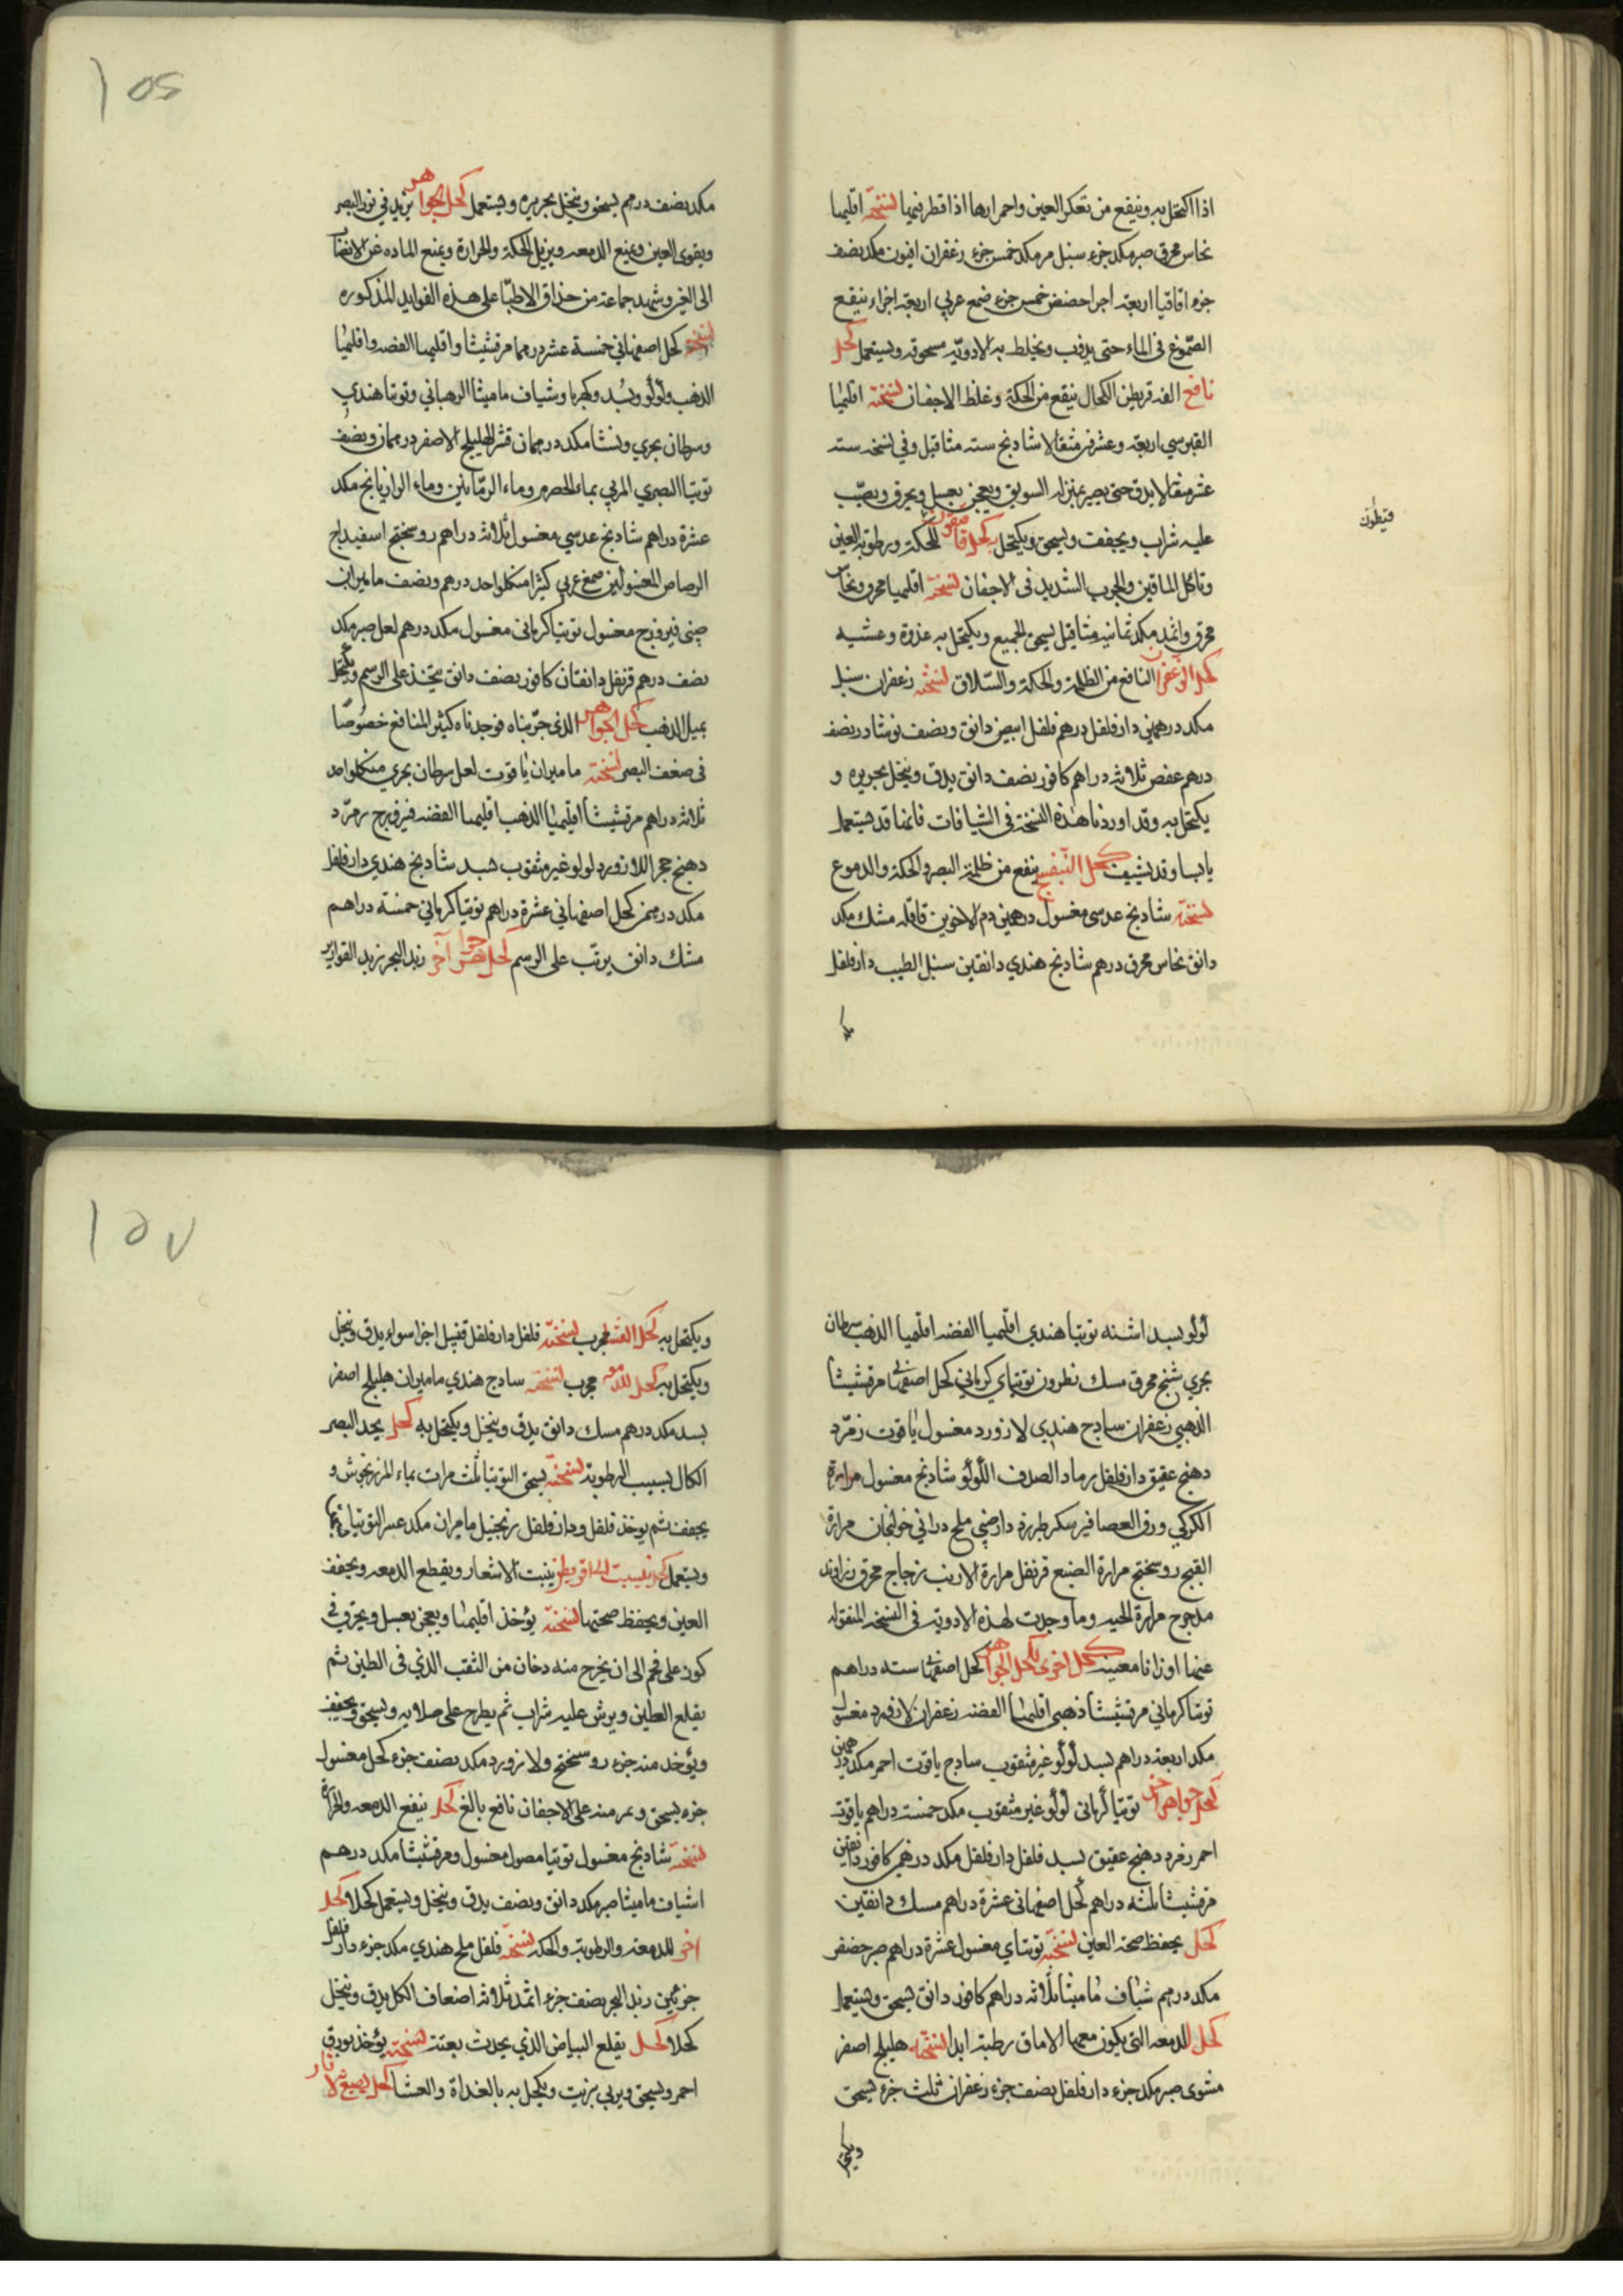 اذا اكتحل به وينفع من تعكر العين واحمرارها اذا قطر فيها نسخته اقليميا
نحاس محرق صبر مكد جزء سنبل مر مكد خمس جزء زعفران افيون مكد نصف
جزء اقاقيا اربعة اجزا حضض خمس جزء صمغ عربي اربعة اجزاء ينقع
الصموغ فى الماء حتى يذوب ويخلط به الادوية مسحوقه ويستعمل كحل
نافع الفه قريطن الكحال ينفع من الحكة وغلظ الاجفان نسخته اقليميا
القبرسي اربعة وعشرين مثقالا شادنج ستة مثاقيل وفي نسخه سته
عشر مثقالا يدق حتى يصير بمنزلة السويق ويعجن بعسل ويحرق ويصب
عليه شراب ويجفف ويسحق ويكتحل به كحل للحكة ورطوبة العين
قيطون
وتاكل الماقين والجرب الشديد فى الاجفان نسخته اقليميا محرق ونحاس
محرق واثمد مكد ثمانية مثاقيل يسحق الجميع ويكتحل به غدوة وعشيه
كحل الزعفران النافع من الظلمة والحكة والسلاق نسخته زعفران سنبل
مكد درهمين دارفلفل درهم فلفل ابيض دانق ونصف نوشادر نصف
درهم عفص ثلاثة دراهم كافور نصف دانق يدق وينخل بحريره و
يكتحل به وقد اوردنا هذة النسخة فى الشيافات فانها قد تستعمل
يابسا وقد يشيف كحل البنفسج ينفع من ظلمة البصر والحكة والدموع
نسخته شادنج عدسى مغسول درهمين دم الاخوين قاقله مشك مكد
دانق نحاس محرق درهم شادنج هندي دانقين سنبل الطيب دارفلفل
مكد نصف درهم يسحق وينخل بحريره ويستعمل كحل الجواهر يزيد في نور البصر
ويقوى العين ويمنع الدمعه ويزيل الحكة والحرارة ويمنع الماده عن الانصباب
الى الغير وشهد جماعة من حذاق الاطبا على هذه الفوايد المذكوره
نسخته كحل اصفهاني خمسة عشر درهما مرقشيثا واقليميا الفضه واقليميا
الذهب ولؤلؤ وبسد وكهربا وشياف ماميثا الرهباني وتوتيا هندي
وسرطان بحري ونشا مكد درهمان قشر الهليلج الاصفر درهمان ونصف
توتيا البصري المربي بماء الحصرم وماء الرمانين وماء الرازيانج مكد
عشرة دراهم شادنج عدسي مغسول ثلاثة دراهم روسختج اسفيداج
الرصاص المغسولين صمغ عربي كثيرا منكلواحد درهم ونصف ماميران
چينى فيروزج مغسول توتيا كرماني مغسول مكد درهم لعل صبر مكد
نصف درهم قرنفل دانقان كافور نصف دانق يتخذ على الرسم ويكتحل
بميل الذهب كحل الجواهر الذى جربناه فوجدناه كثير المنافع خصوصا
فى ضعف البصر نسخته ماميران ياقوت لعل سرطان بحري منكلواحد
ثلاثة دراهم مرقشيثا اقليميا الذهب اقليميا الفضه فيروزج زمرد
دهنج حجر اللازورد لولو غير مثقوب بسد شادنج هندي دارفلفل
مكد درهمين كحل اصفهاني عشرة دراهم توتيا كرماني خمسة دراهم
مشك دانق يرتب على الرسم كحل جواهر آخر زبد البحر زبد القوارير
لؤلؤ بسد اشنه توتيا هندي اقليميا الفضه اقليميا الذهب سرطان
بحري شنج محرق مسك نطرون توتياي كرماني كحل اصفهاني مرقشيثا
الذهبي زعفران سادج هندي لازورد مغسول ياقوت زمرد
دهنج عقيق دارفلفل رماد الصدف اللؤلؤ شادنج مغسول مرارة
الكركي ورق العصافير سكر طبرزد دارصيني ملح دراني خولنجان مرارة
القبج روسختج مرارة الضبع قرنفل مرارة الارنب زجاج محرق زراوند
مدحرج مرارة الحيه وما وجدت لهذه الادوية فى النسخه المنقوله
عنها اوزانا معينة كحل اخرى كحل الجواهر كحل اصفهاني سته دراهم
توتيا كرماني مرقشيثا ذهبى اقليميا الفضه زعفران لازورد مغسول
مكد اربعة دراهم بسد لؤلؤ غير مثقوب سادج ياقوت احمر مكد درهمين
كحل جواهر اخر توتيا كرماني لؤلؤ غير مثقوب مكد خمسة دراهم ياقوت
احمر زمرد دهنج عقيق بسد فلفل دارفلفل مكد درهمى كافور دانقين
مرقشيثا ثلثه دراهم كحل اصفهانى عشرة دراهم مسك دانقين
كحل يحفظ صحة العين نسخته توتياي مغسول عشرة دراهم صبر حضض
مكد درهم شياف ماميثا ثلاثه دراهم كافور دانق يسحق ويستعمل
كحل للدمعه التى يكون معها الاماق رطبة ابدا نسخته هليلج اصفر
مشوى صبر مكد جزء دارفلفل نصف جزء زعفران ثلث جزء يسحق
ويكتحل
ويكتحل به كحل العشا مجرب نسخته فلفل دارفلفل قنبيل اجزا سواء يدق وينخل
ويكتحل به كحل للدمعه مجرب نسخته سادج هندي ماميران هليلج اصفر
بسد مكد درهم مسك دانق يدق وينخل ويكتحل به كحل يحد البصر
الكال بسبب الرطوبة نسخته يسحق التوتيا ثلث مرات بماء المرزنجوش و
يجفف ثم يوخذ فلفل ودارفلفل زنجبيل ماميران مكد عشر التوتيا
ويستعمل كحل ينبت الاشعار ويقطع الدمعه ويجفف
العين ويحفظ صحتها نسخته يؤخذ اقليميا ويعجن بعسل ويحرق فى
كوز على فحم الى ان يخرج منه دخان من الثقب الذي فى الطين ثم
يقلع الطين ويرش عليه شراب ثم يطرح على صلايه ويسحق ويجفف
ويؤخذ منه جزء روسختج ولازورد مكد نصف جزء كحل مغسول
جزء يسحق ويمر منه على الاجفان نافع بالغ كحل ينفع الدمعه والحرارة
نسخته شادنج مغسول توتيا مصول مغسول ومرقشيثا مكد درهم
اشياف ماميثا صبر مكد دانق ونصف يدق وينخل ويستعمل كحلا كحل
اخر للدمعه والرطوبة والحكه نسخته فلفل ملح هندي مكد جزء دارفلفل
جزئين زبد البحر نصف جزء اثمد ثلاثة اضعاف الكل يدق وينخل
كحلا كحل يقلع البياض الذي يحدث بغتة نسخته يؤخذ بورق
احمر ويسحق ويربي بزيت ويكحل به بالغداة والعشا كحل يصبغ